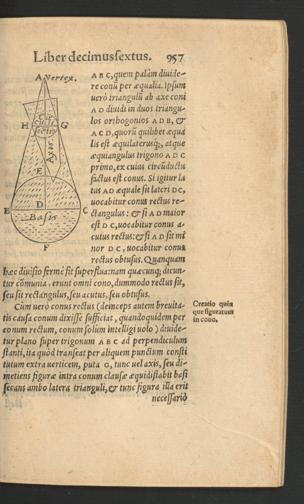 Liber decimus sextus. 957
A Vertex.
H G
Axis.
E
D
B C
Basis
F
A B C, quem palàm diuide-
re conũ per æqualia. Ipsum
uerò triangulũ ab axe coni
A D diuidi in duos triangu-
los orthogonios A D B, &
A C D, quorũ quilibet æqua
lis est æquilaterusq;, atque
æquiangulus trigono A D C
primo, ex cuius circũductu
factus est conus. Si igitur la
tus A D æquale sit lateri D C,
uocabitur conus rectus re-
ctangulus: & si A D maior
est D C, uocabitur conus a-
cutus rectus: & si A D sit mi
nor D C, uocabitur conus
rectus obtusus. Quanquam
hæc diuisio fermè sit superflua: nam quæcunq; dicun-
tur cõmunia, erunt omni cono, dummodo rectus sit,
seu sit rectangulus, seu acutus, seu obtusus.
Cùm uerò conus rectus (deinceps autem breuita-
tis causa conum dixisse sufficiat, quandoquidem per
conum rectum, conum solùm intelligi uolo) diuide-
tur plano super trigonum A B C ad perpendiculum
stanti, ita quòd transeat per aliquem punctum consti
tutum extra uerticem, puta G, tunc uel axis, seu di-
metiens figuræ intra conum clausæ æquidistabit basi
secans ambo latera trianguli, & tunc figura illa erit
necessariò
Creatio quin
que figurarum
in cono,